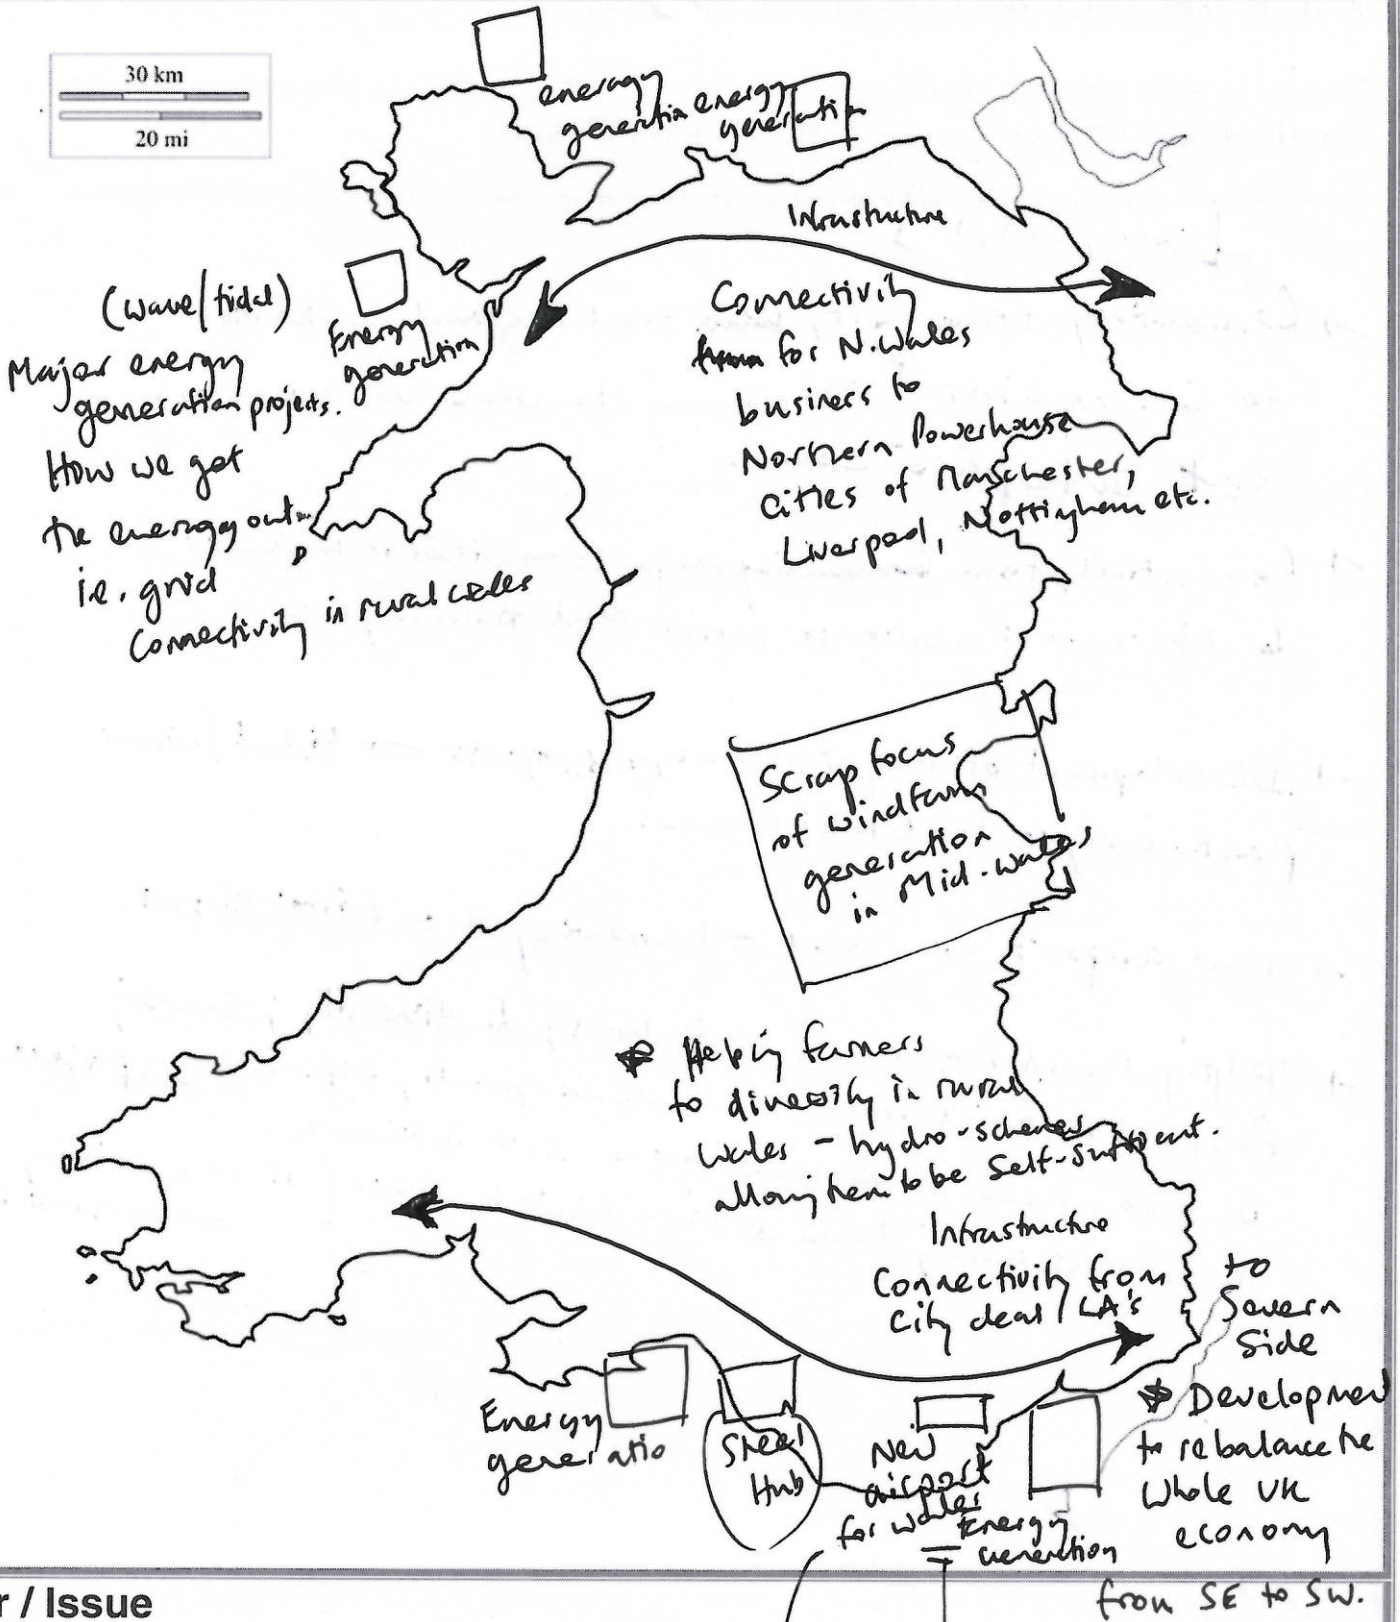 30 km
20 mi
eneragy
generation
energy
generation
Infrastructure
(wave/tidal)
Major energy
generation projects.
How we get
the eneragy out
i.e. grid
Connectivity in rural wales
Energy
generation
Connectivity
for N.Wales
business to
Northern Powerhouse
Cities of Manchester,
Liverpool, Nottingham etc.
Scrap focus
of windfarm
generation
in Mid-Wales
Helping farmers
to diversify in rural
Wales - hydro-schemes
allowing them to be Self-sufficient.
Infrastructure
Connectivity from
City deal / LA's
to
Severn
Side
Energy
generatio
Steel
Hub
New
airport
for Wales
Energy
Generation
Development
to rebalance the
Whole UK
economy
from SE to SW.
r / Issue